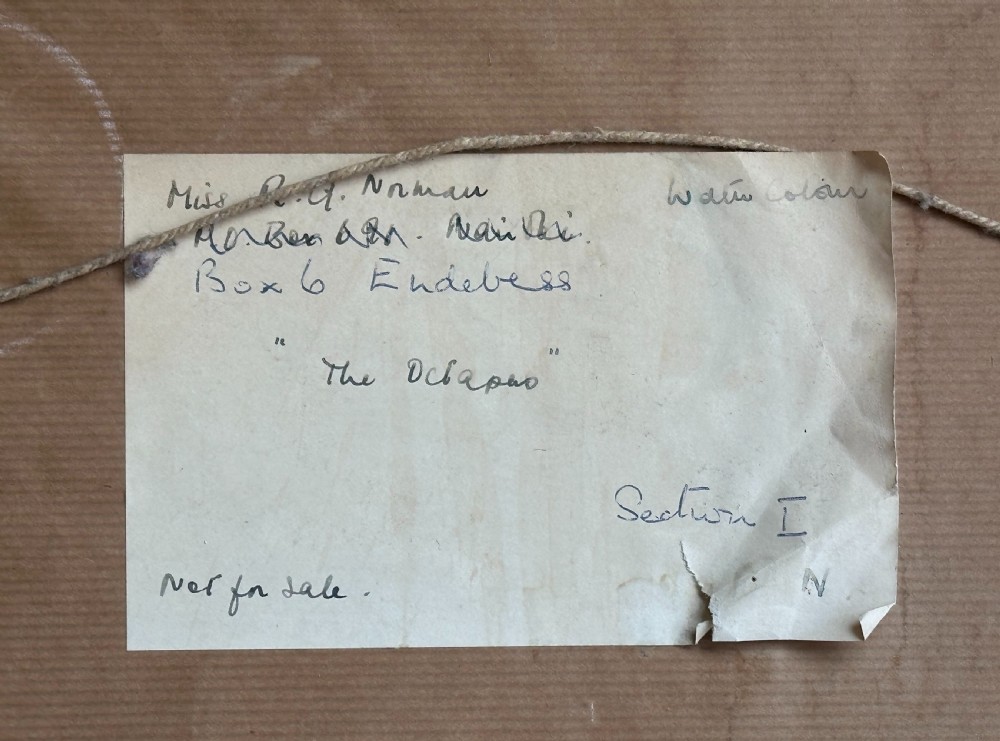 Miss R. G. Norman Water Colour
Box 6 Endebess
"The Octapus"
Section I
N
Not for sale.